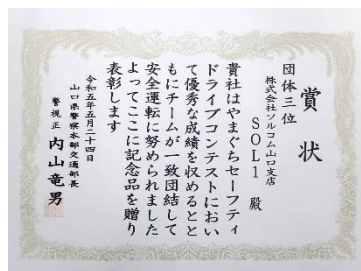 賞状
団体三位
株式会社ソルコム山口支店
SOL1 殿
貴社はやまぐちセーフティ
ドライブコンテストにおい
て優秀な成績を収めるとと
もにチームが一致団結して
安全運転に努められました
よってここに記念品を贈り
表彰します
令和五年五月二十四日
山口県警察本部交通部長
警視正 内山竜男